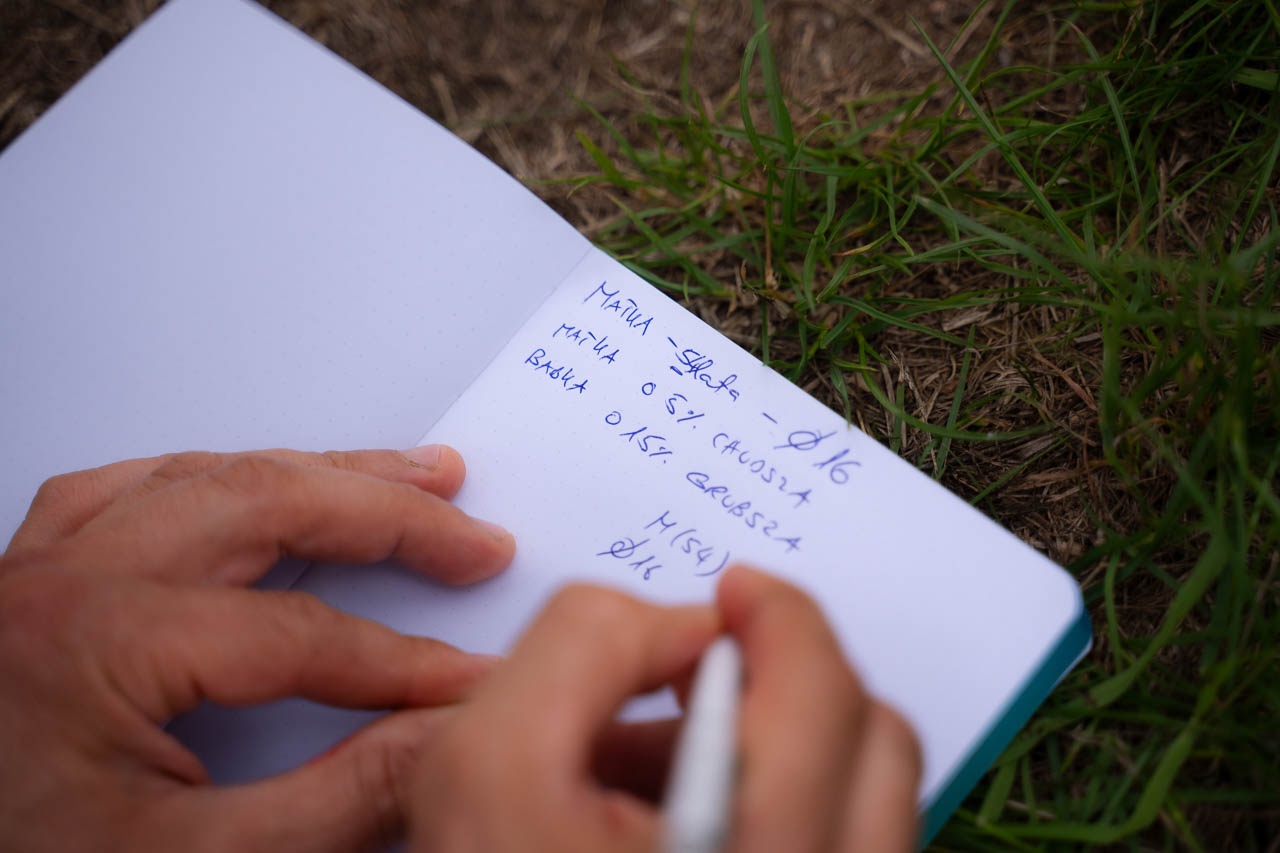 MATKA - 54lata - Ø 16
MATKA O 5% CHUDSZA
BABKA O 15% GRUBSZA
M(54)
Ø16